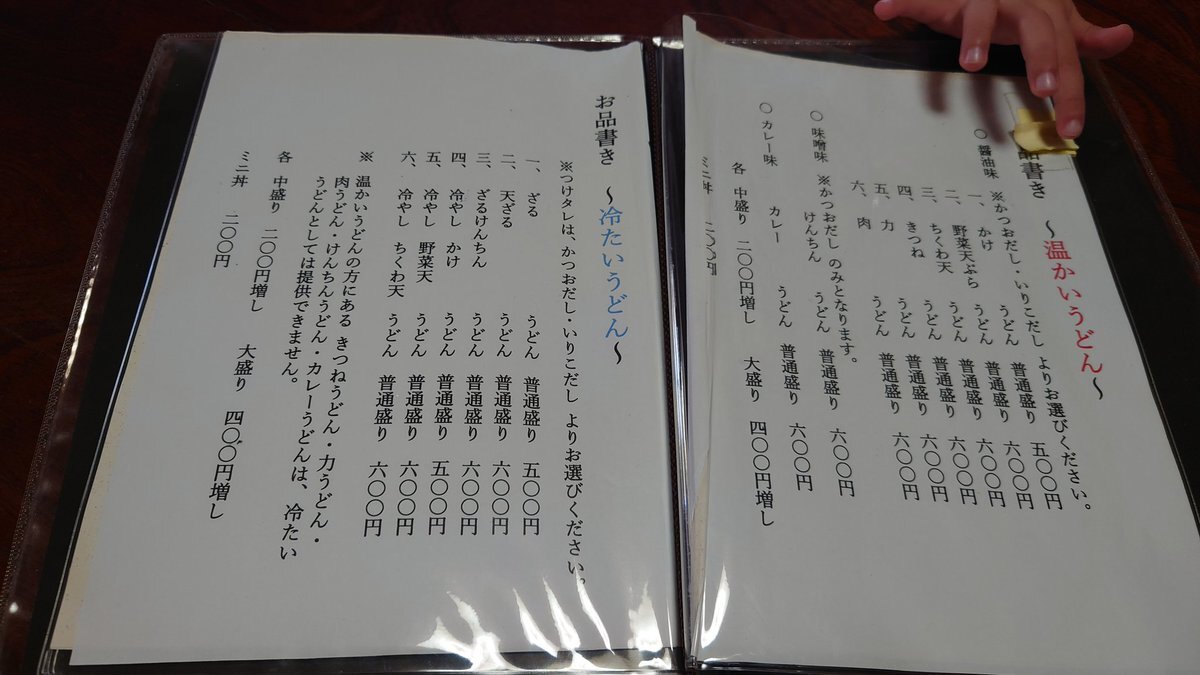 品書き ～温かいうどん～
○ 醤油味 ※かつおだし・いりこだし よりお選びください。
一、 かけ うどん 普通盛り 五〇〇円
二、 野菜天ぷら うどん 普通盛り 六〇〇円
三、 ちくわ天 うどん 普通盛り 六〇〇円
四、 きつね うどん 普通盛り 六〇〇円
五、 力 うどん 普通盛り 六〇〇円
六、 肉 うどん 普通盛り 六〇〇円
○ 味噌味 ※かつおだし のみとなります。
けんちん うどん 普通盛り 六〇〇円
○ カレー味
カレー うどん 普通盛り 六〇〇円
各 中盛り 二〇〇円増し 大盛り 四〇〇円増し
ミニ丼 二〇〇円
お品書き ～冷たいうどん～
※つけタレは、かつおだし・いりこだし よりお選びください。
一、 ざる うどん 普通盛り 五〇〇円
二、 天ざる うどん 普通盛り 六〇〇円
三、 ざるけんちん うどん 普通盛り 六〇〇円
四、 冷やし かけ うどん 普通盛り 五〇〇円
五、 冷やし 野菜天 うどん 普通盛り 六〇〇円
六、 冷やし ちくわ天 うどん 普通盛り 六〇〇円
※ 温かいうどんの方にある きつねうどん・力うどん・
肉うどん・けんちんうどん・カレーうどんは、冷たい
うどんとしては提供できません。
各 中盛り 二〇〇円増し 大盛り 四〇〇円増し
ミニ丼 二〇〇円